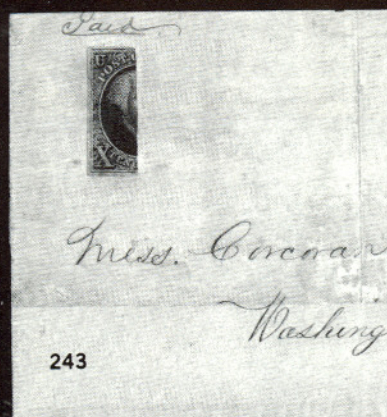 Paid
U
POST
X
Miss. Corcoran
Washing
243